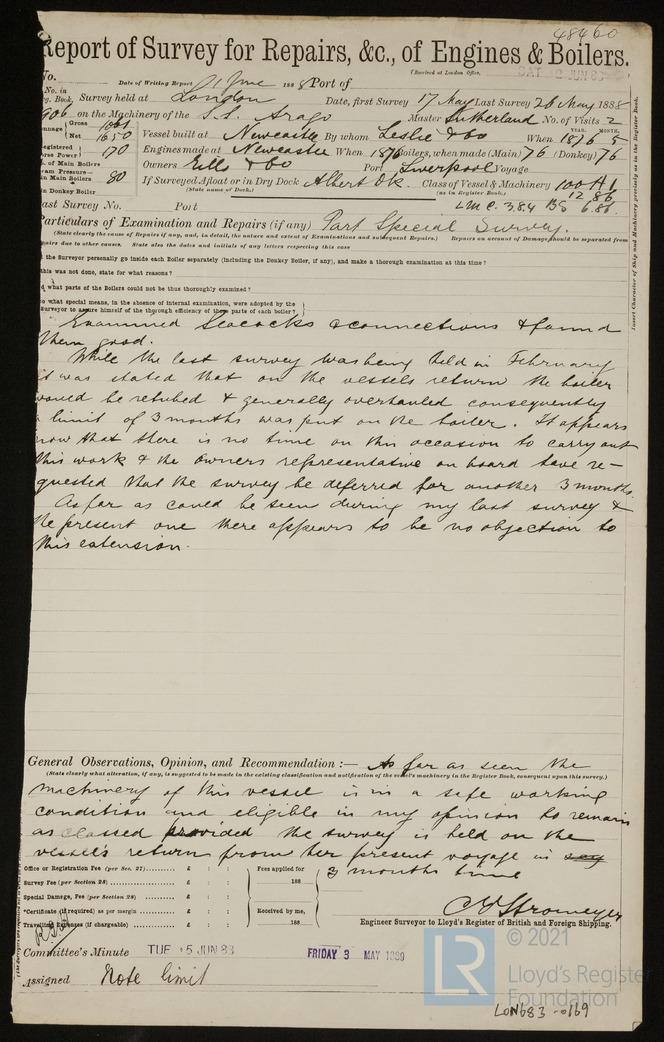 48460
Report of Survey for Repairs, &c., of Engines & Boilers.
No.
Date of Writing Report 1 June 1888 Port of
(Received at London Office,
SAT 2 JUN 83
No. in
Reg. Book. Survey held at London Date, first Survey 17 May Last Survey 26 May 1888
906 on the Machinery of the S.S. Arago Master Sutherland No. of Visits 2
Tonnage Gross
Net 1650
YEAR. MONTH.
Vessel built at Newcastle By whom Leslie & Co When 1876 5
Registered
Horse Power 170 Engines made at Newcastle When 1876 Boilers, when made (Main) 76 (Donkey) 76
No. of Main Boilers Owners & Co Port Liverpool Voyage
Steam Pressure—
in Main Boilers 80 If Surveyed Afloat or in Dry Dock Albert Dk. Class of Vessel & Machinery 100 A1
(State name of Dock.) (as in Register Book.) 12,86
in Donkey Boiler
Last Survey No. Port LMC 3.84 BS 6.86
Particulars of Examination and Repairs (if any) Part Special Survey.
(State clearly the cause of Repairs if any, and, in detail, the nature and extent of Examinations and subsequent Repairs.) Repairs on account of Damage should be separated from
repairs due to other causes. State also the dates and initials of any letters respecting this case
the Surveyor personally go inside each Boiler separately (including the Donkey Boiler, if any), and make a thorough examination at this time?
this was not done, state for what reasons?
what parts of the Boilers could not be thus thoroughly examined?
what special means, in the absence of internal examination, were adopted by the
Surveyor to assure himself of the thorough efficiency of those parts of each boiler?
Examined Seacocks & connections & found
them good.
While the last survey was being held in February
it was stated that on the vessels return the boiler
would be retubed & generally overhauled consequently
a limit of 3 months was put on the boiler. It appears
now that there is no time on this occasion to carry out
this work & the owners representative on board have re-
quested that the survey be deferred for another 3 months.
As far as could be seen during my last survey &
the present one there appears to be no objection to
this extension.
General Observations, Opinion, and Recommendation :— As far as seen the
(State clearly what alteration, if any, is suggested to be made in the existing classification and notification of the vessel's machinery in the Register Book, consequent upon this survey.)
machinery of this vessel is in a safe working
condition and eligible in my opinion to remain
as classed provided the survey is held on the
vessel's return from her present voyage in
3 months time
Office or Registration Fee (per Sec. 27) £ : :
Survey Fee (per Section 28) £ : :
Special Damage, Fee (per Section 28) £ : :
*Certificate (if required) as per margin £ : :
Travelling Expenses (if chargeable) £ : :
Fees applied for
188
Received by me,
188
C E Stromeyer
Engineer Surveyor to Lloyd's Register of British and Foreign Shipping.
Committee's Minute TUE 5 JUN 83 FRIDAY 3 MAY 1889
Assigned Note limit
Insert Character of Ship and Machinery precisely as in the Register Book.
LR
© 2021
Lloyd's Register
Foundation
LON683-0169